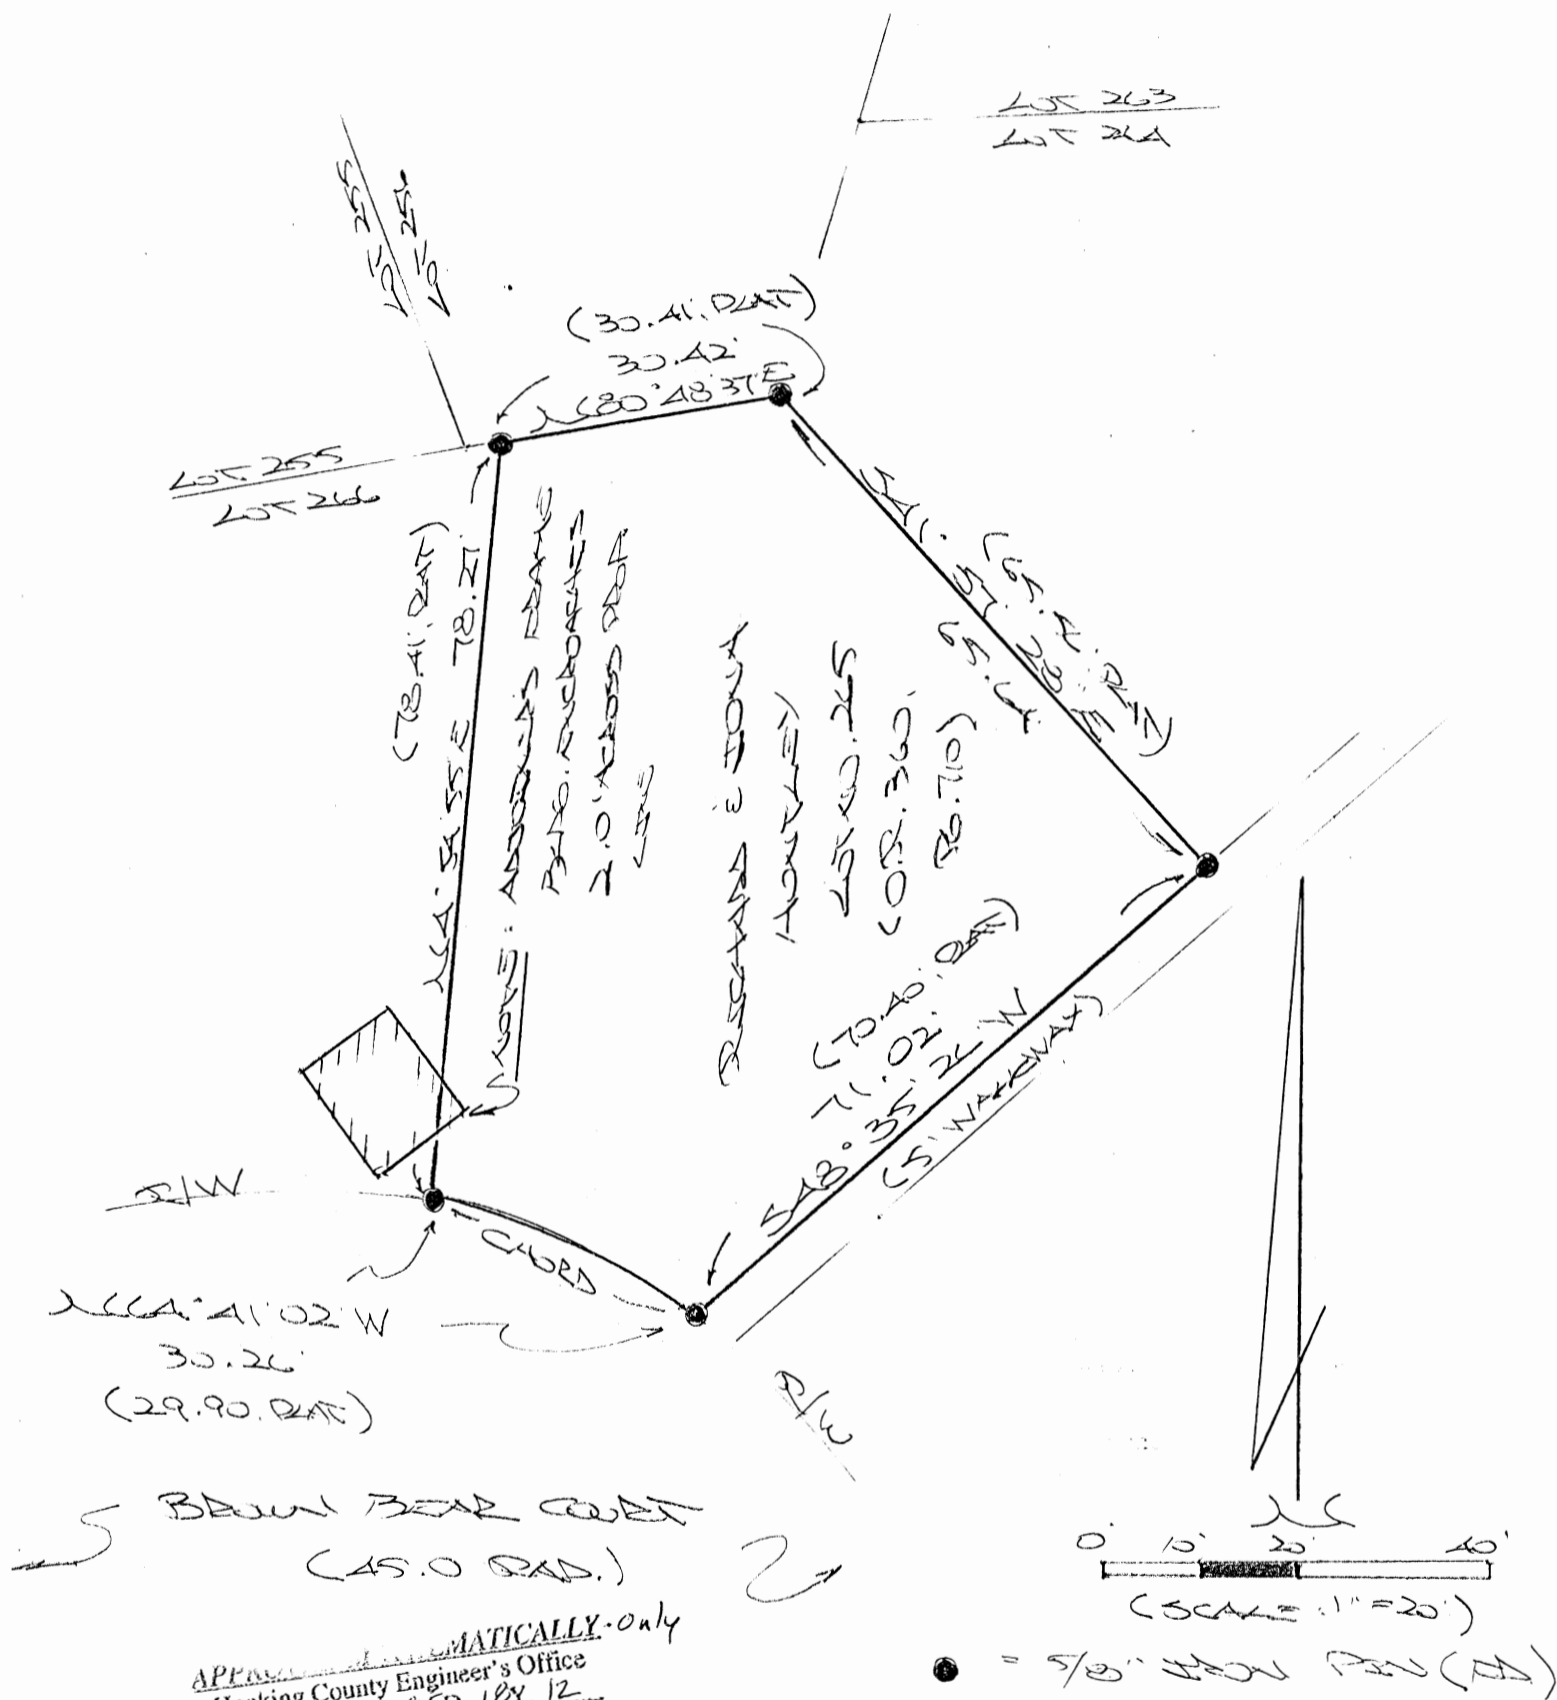 LOT 263
LOT 264
LOT 255
LOT 256
(30.41' PLAT)
30.42'
N 80° 48' 37" E
LOT 255
LOT 266
(78.41' PLAT)
78.27'
NOTE: ADJOINER'S FRAME
BLDG. ENCROACHES
2.0' ACROSS PROP.
LINE
RICHARD & IONA
HUNTLEY
LOT NO. 265
(O.R. 360,
PG. 710)
(70.40' PLAT)
71.02'
S 48° 35' 26" W
(5' WALKWAY)
R/W
CHORD
N 64° 41' 02" W
30.26'
(29.90' PLAT)
R/W
BROWN BEAR COURT
(45.0 RAD.)
N
0' 10' 20' 40'
(SCALE: 1" = 20')
= 5/8" IRON PIN (FD)
MATHEMATICALLY - only
Hocking County Engineer's Office